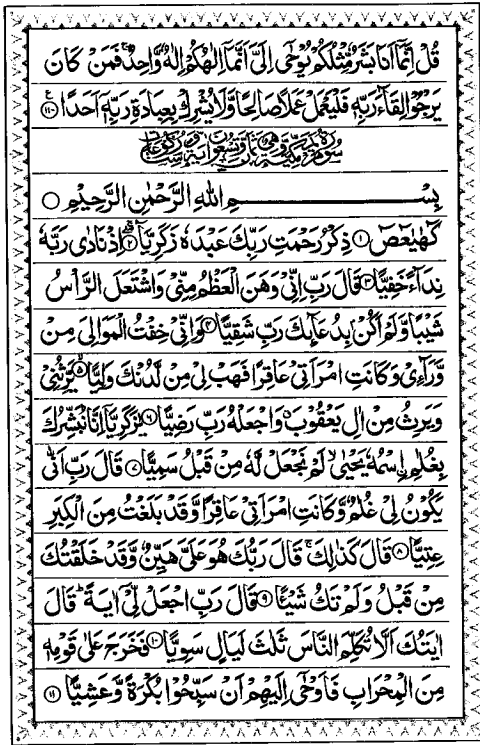 قُلْ اِنَّمَآ اَنَا بَشَرٌ مِّثْلُكُمْ يُوْحٰٓى اِلَيَّ اَنَّمَآ اِلٰهُكُمْ اِلٰهٌ وَّاحِدٌ ۚ فَمَنْ كَانَ
يَرْجُوْا لِقَآءَ رَبِّهٖ فَلْيَعْمَلْ عَمَلًا صَالِحًا وَّلَا يُشْرِكْ بِعِبَادَةِ رَبِّهٖٓ اَحَدًا ۝۱۱۰ ع
سُوْرَةُ مَرْيَمَ مَكِّيَّةٌ وَّهِيَ ثَمَانٌ وَّتِسْعُوْنَ اٰيَةً وَّسِتُّ رُكُوْعَاتٍ
بِسْمِ اللهِ الرَّحْمٰنِ الرَّحِيْمِ ۝
كٓهٰيٰعٓصٓ ۝۱ ذِكْرُ رَحْمَتِ رَبِّكَ عَبْدَهٗ زَكَرِيَّا ۝۲ اِذْ نَادٰى رَبَّهٗ
نِدَآءً خَفِيًّا ۝۳ قَالَ رَبِّ اِنِّيْ وَهَنَ الْعَظْمُ مِنِّيْ وَاشْتَعَلَ الرَّاْسُ
شَيْبًا وَّلَمْ اَكُنْۢ بِدُعَآئِكَ رَبِّ شَقِيًّا ۝۴ وَاِنِّيْ خِفْتُ الْمَوَالِيَ مِنْ
وَّرَآءِيْ وَكَانَتِ امْرَاَتِيْ عَاقِرًا فَهَبْ لِيْ مِنْ لَّدُنْكَ وَلِيًّا ۝۵ يَّرِثُنِيْ
وَيَرِثُ مِنْ اٰلِ يَعْقُوْبَ ۖ وَاجْعَلْهُ رَبِّ رَضِيًّا ۝۶ يٰزَكَرِيَّآ اِنَّا نُبَشِّرُكَ
بِغُلٰمِ ۨاسْمُهٗ يَحْيٰى ۙ لَمْ نَجْعَلْ لَّهٗ مِنْ قَبْلُ سَمِيًّا ۝۷ قَالَ رَبِّ اَنّٰى
يَكُوْنُ لِيْ غُلٰمٌ وَّكَانَتِ امْرَاَتِيْ عَاقِرًا وَّقَدْ بَلَغْتُ مِنَ الْكِبَرِ
عِتِيًّا ۝۸ قَالَ كَذٰلِكَ ۚ قَالَ رَبُّكَ هُوَ عَلَيَّ هَيِّنٌ وَّقَدْ خَلَقْتُكَ
مِنْ قَبْلُ وَلَمْ تَكُ شَيْـًٔا ۝۹ قَالَ رَبِّ اجْعَلْ لِّيْٓ اٰيَةً ؕ قَالَ
اٰيَتُكَ اَلَّا تُكَلِّمَ النَّاسَ ثَلٰثَ لَيَالٍ سَوِيًّا ۝۱۰ فَخَرَجَ عَلٰى قَوْمِهٖ
مِنَ الْمِحْرَابِ فَاَوْحٰٓى اِلَيْهِمْ اَنْ سَبِّحُوْا بُكْرَةً وَّعَشِيًّا ۝۱۱